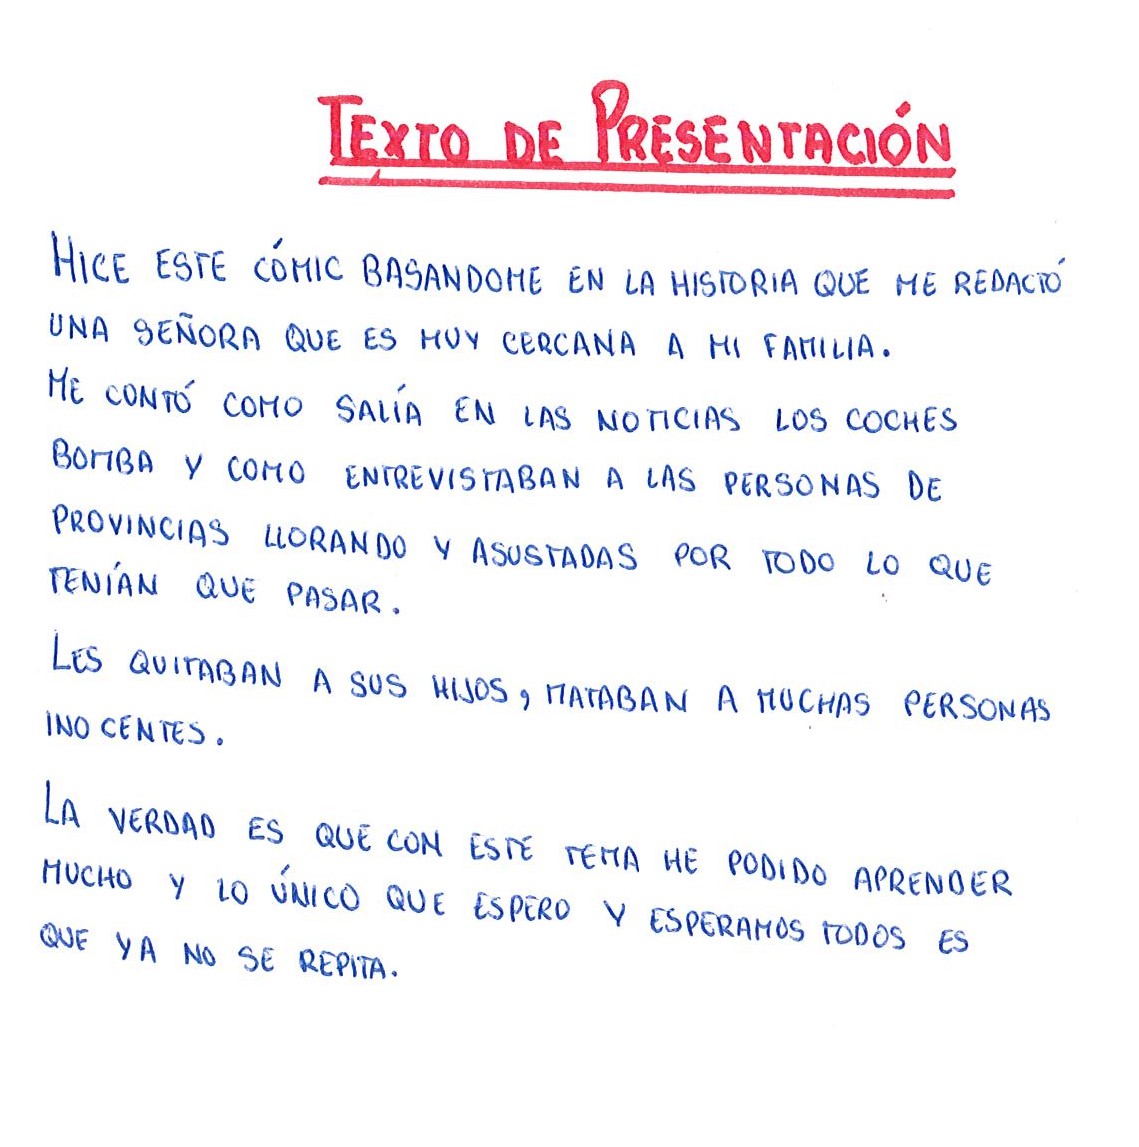 TEXTO DE PRESENTACIÓN
HICE ESTE CÓMIC BASANDOME EN LA HISTORIA QUE ME REDACTÓ
UNA SEÑORA QUE ES MUY CERCANA A MI FAMILIA.
ME CONTÓ COMO SALÍA EN LAS NOTICIAS LOS COCHES
BOMBA Y COMO ENTREVISTABAN A LAS PERSONAS DE
PROVINCIAS LLORANDO Y ASUSTADAS POR TODO LO QUE
TENÍAN QUE PASAR.
LES QUITABAN A SUS HIJOS, MATABAN A MUCHAS PERSONAS
INOCENTES.
LA VERDAD ES QUE CON ESTE TEMA HE PODIDO APRENDER
MUCHO Y LO ÚNICO QUE ESPERO Y ESPERAMOS TODOS ES
QUE YA NO SE REPITA.